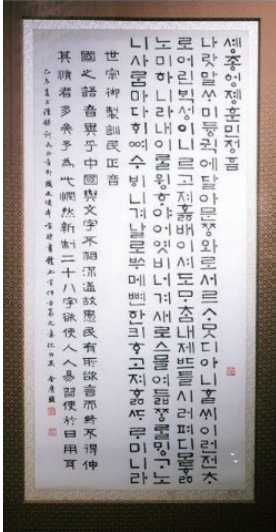 솅종엉졩훈민졍흠
나랏말ᄊᆞ미듕귁에달아문ᄍᆞ와로서르ᄉᆞᄆᆞᆺ디아니ᄒᆞᆯᄊᆡ이런젼ᄎᆞ
로어린ᄇᆡᆨ셩이니르고져ᄒᆞᇙ배이셔도ᄆᆞᄎᆞᆷ내제ᄠᅳ들시러펴디몯ᄒᆞᇙ
노미하니라내이ᄅᆞᆯ윙ᄒᆞ야어엿비너겨새로스믈여듧ᄍᆞᄅᆞᆯᄆᆡᇰᄀᆞ노
니사ᄅᆞᆷ마다ᄒᆡᅇᅧ수ᄫᅵ니겨날로ᄡᅮ메뼌한킈ᄒᆞ고져ᄒᆞᇙᄯᆞᄅᆞ미니라
世宗御製訓民正音
國之語音異乎中國與文字不相流通故愚民有所欲言而終不得伸
其情者多矣予爲此憫然新制二十八字欲使人人易習便於日用耳